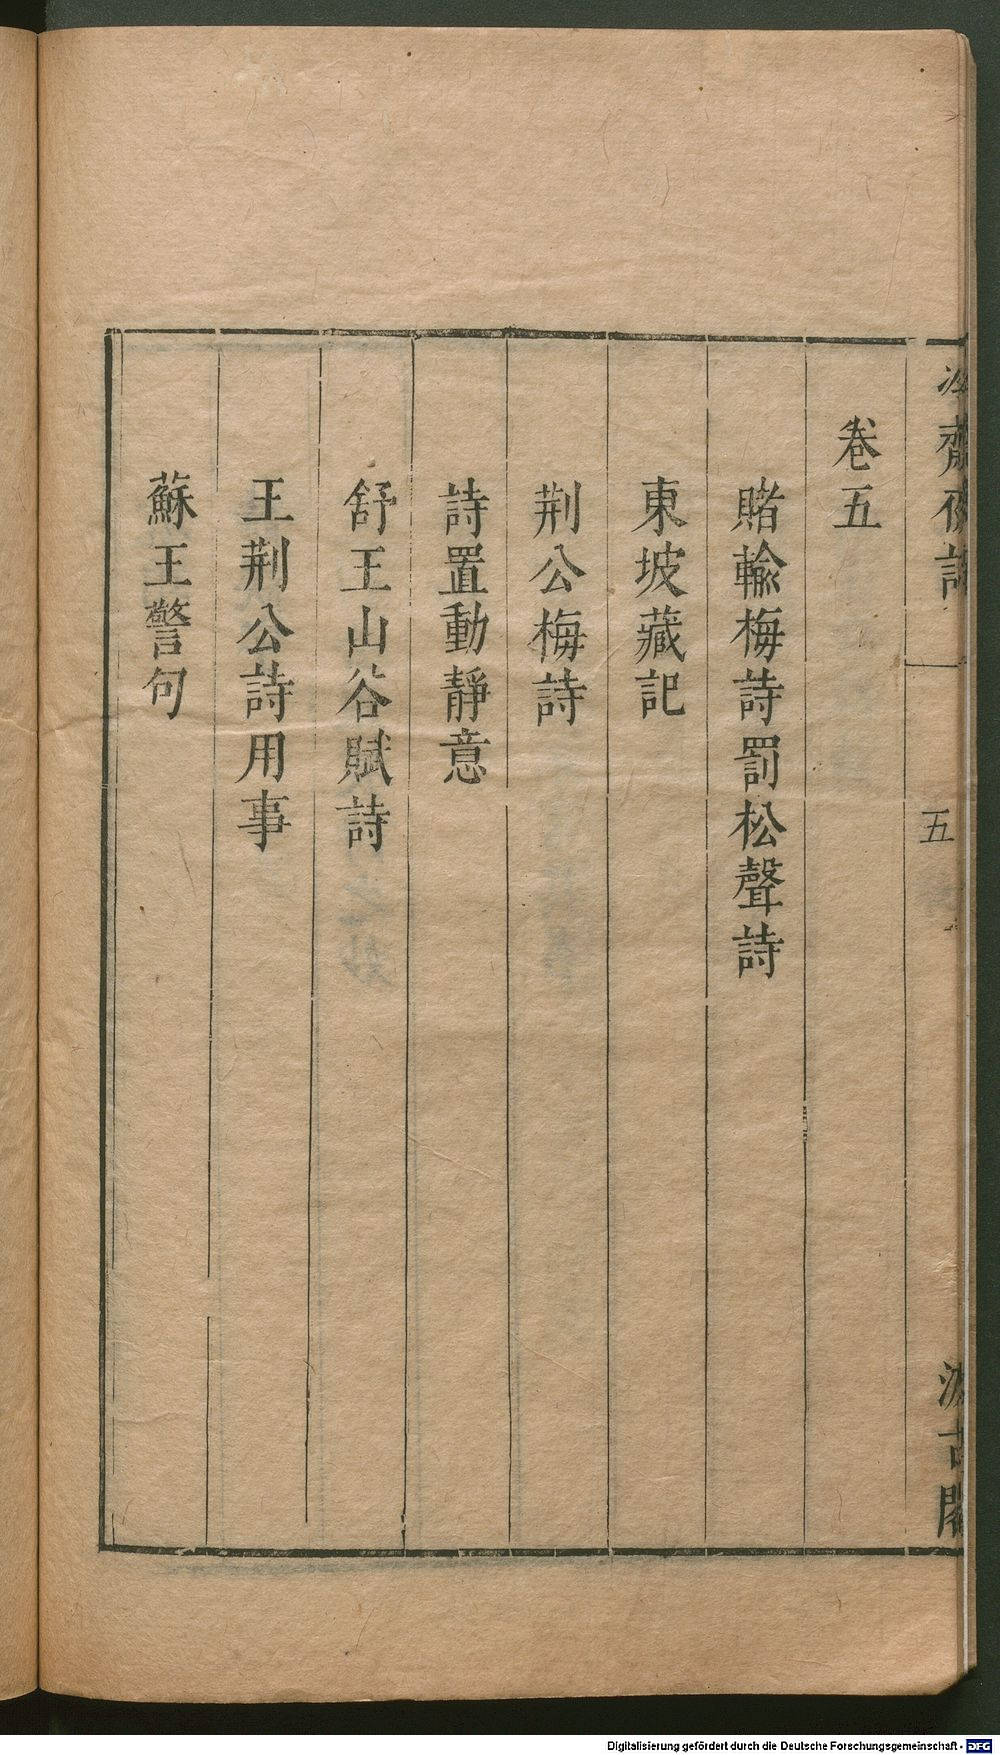 冷齋夜話
五
汲古閣
卷五
賭輸梅詩罰松聲詩
東坡藏記
荆公梅詩
詩置動靜意
舒王山谷賦詩
王荆公詩用事
蘇王警句
Digitalisierung gefördert durch die Deutsche Forschungsgemeinschaft - DFG